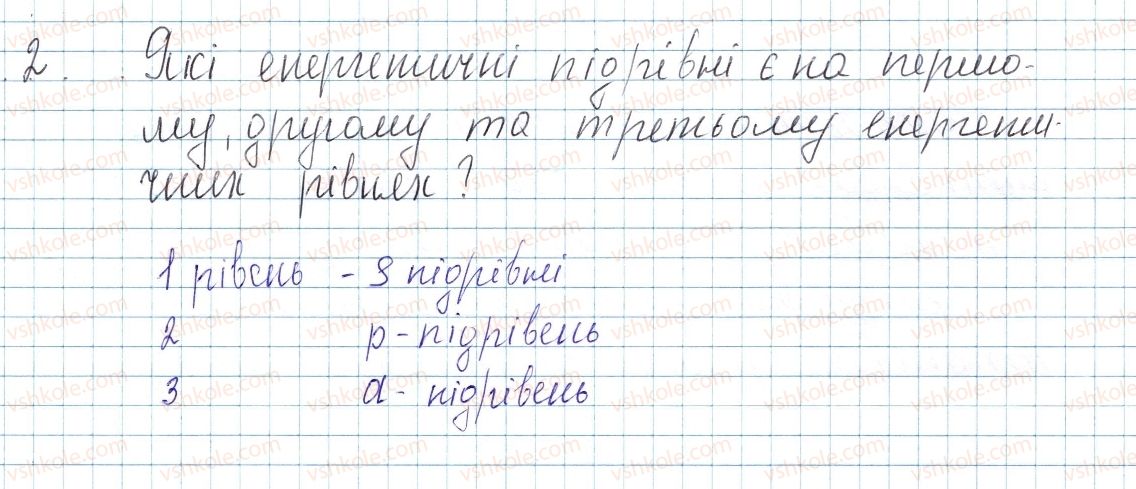 2. Які енергетичні підрівні є на першо-
му, другому та третьому енергети-
чних рівнях?
1 рівень - S підрівні
2 p - підрівень
3 d - підрівень